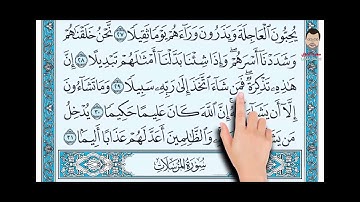 يُحِبُّونَ ٱلْعَاجِلَةَ وَيَذَرُونَ وَرَآءَهُمْ يَوْمًا ثَقِيلًا ٢٧ نَّحْنُ خَلَقْنَٰهُمْ
وَشَدَدْنَآ أَسْرَهُمْ وَإِذَا شِئْنَا بَدَّلْنَآ أَمْثَٰلَهُمْ تَبْدِيلًا ٢٨ إِنَّ
هَٰذِهِۦ تَذْكِرَةٌ فَمَن شَآءَ ٱتَّخَذَ إِلَىٰ رَبِّهِۦ سَبِيلًا ٢٩ وَمَا تَشَآءُونَ
إِلَّآ أَن يَشَآءَ إِنَّ ٱللَّهَ كَانَ عَلِيمًا حَكِيمًا ٣٠ يُدْخِلُ
مَن وَٱلظَّٰلِمِينَ أَعَدَّ لَهُمْ عَذَابًا أَلِيمًا ٣١
سُورَةُ المُرْسَلَات